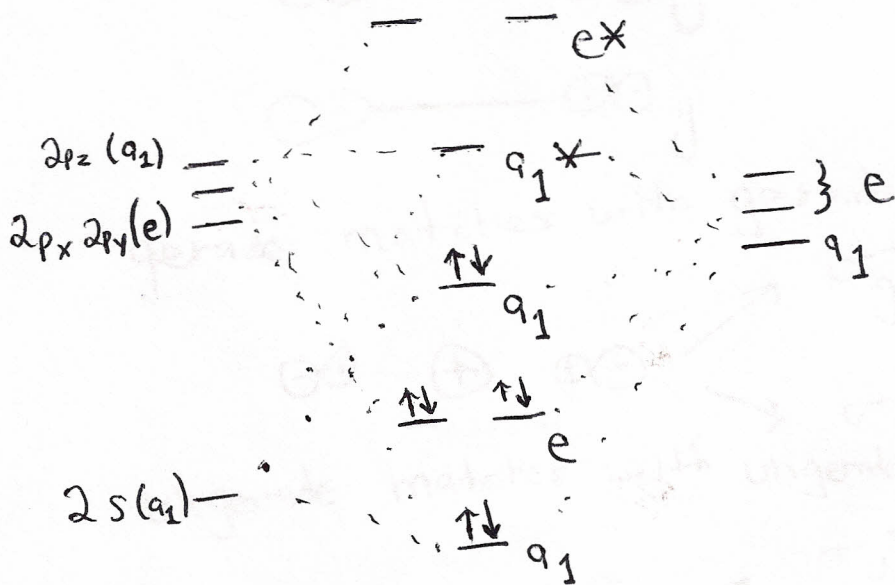 e*
2pz (a1)
a1*
} e
2px 2py(e)
a1
↑↓
a1
↑↓ ↑↓
e
2s(a1)
↑↓
a1